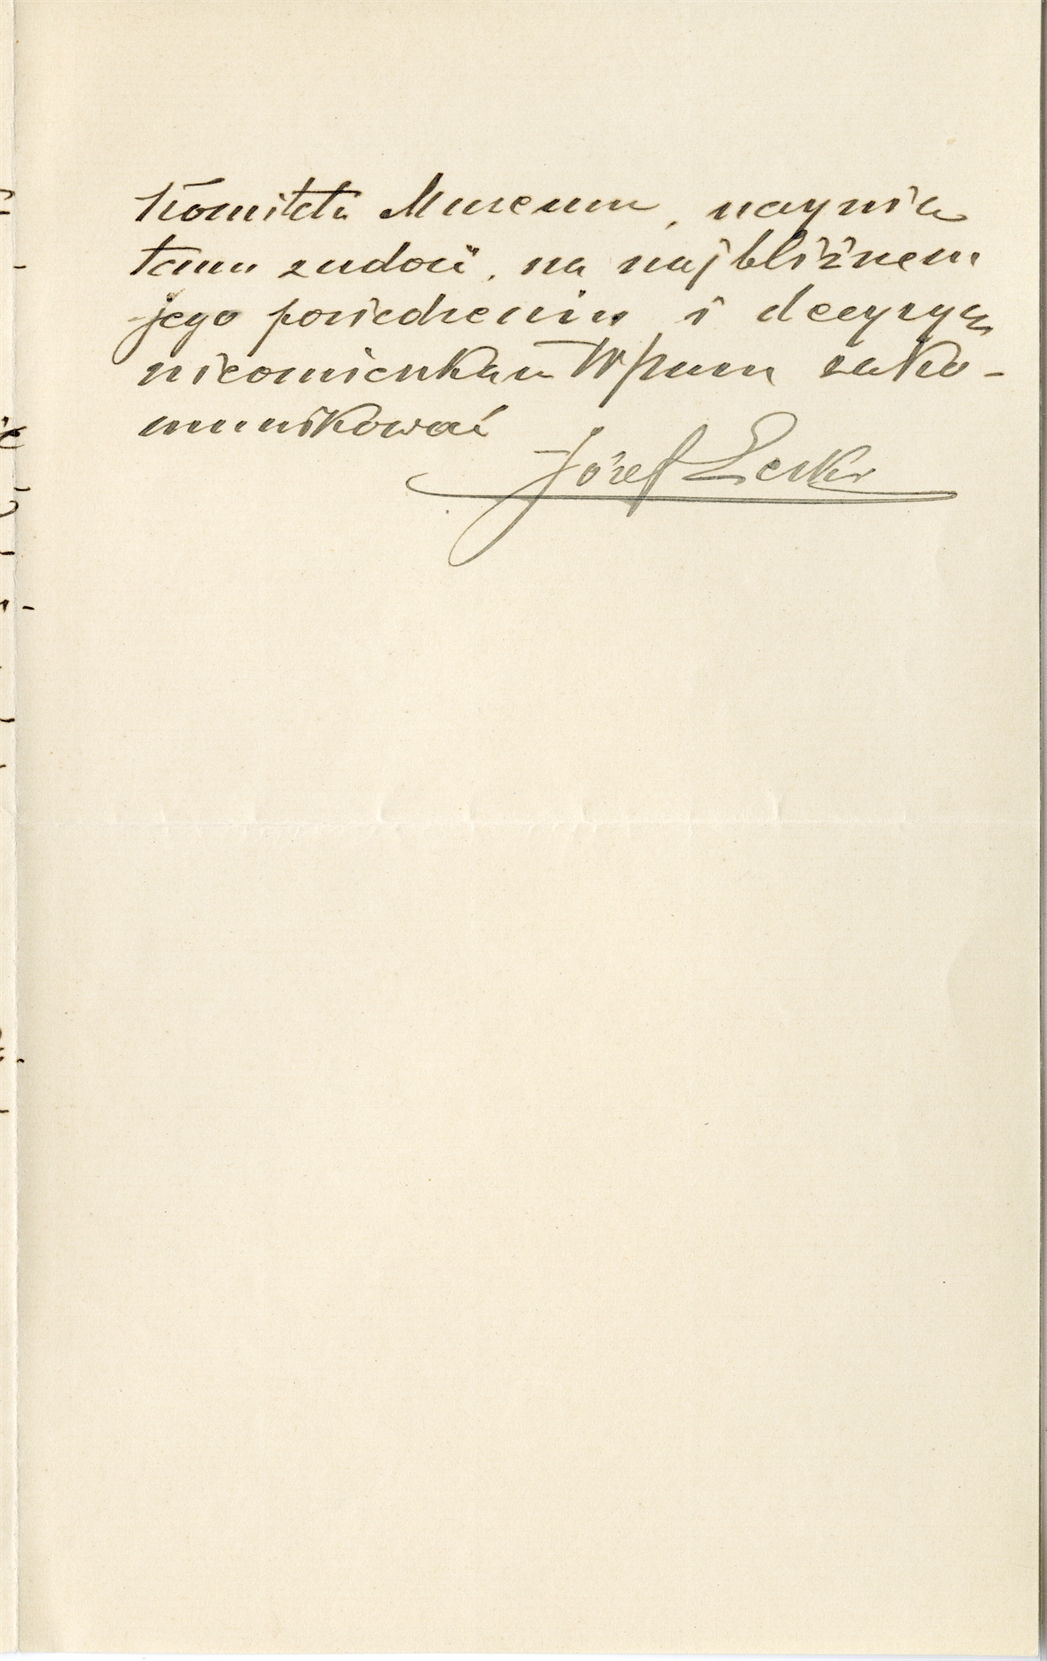 Komitetu Museum, uczynię
temu zadość, na najbliższem
jego posiedzeniu i decyzyę
nieomieszkam WPanu zako-
munikować
Józef